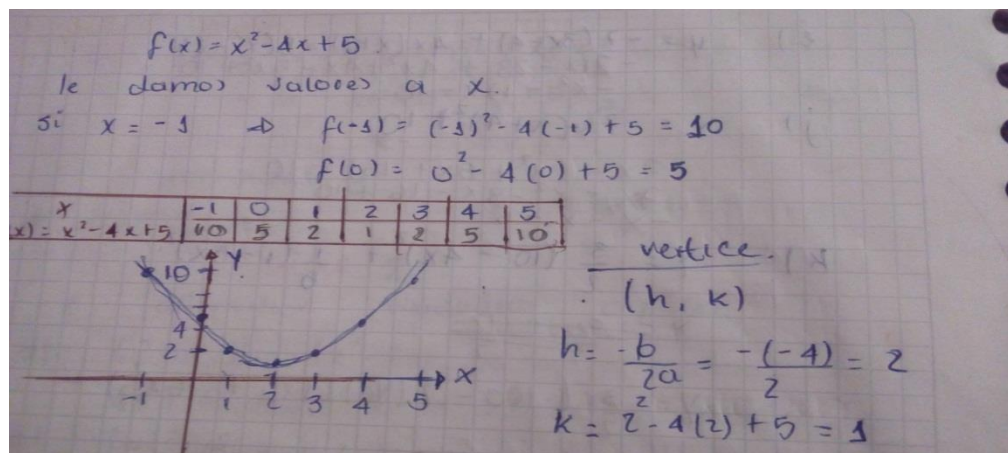 f(x) = x² - 4x + 5
le damos valores a x.
si x = -1 ⇒ f(-1) = (-1)² - 4(-1) + 5 = 10
f(0) = 0² - 4(0) + 5 = 5
x -1 0 1 2 3 4 5
x) = x² - 4x + 5 10 5 2 1 2 5 10
Y
10
4
2
x
-1 1 2 3 4 5
vertice.
(h, k)
h = -b/2a = -(-4)/2 = 2
k = 2² - 4(2) + 5 = 1